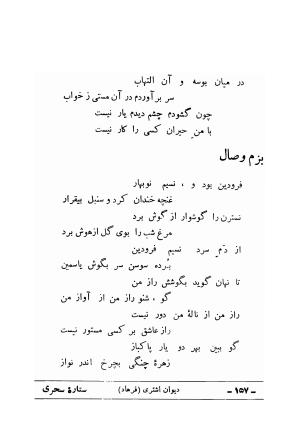 در میان بوسه و آن التهاب
سر برآوردم در آن مستی ز خواب
چون گشودم چشم دیدم یار نیست
با من حیران کسی را کار نیست
بزم وصال
فرودین بود و ، نسیم نوبهار
غنچه خندان کرد و سنبل بیقرار
نسترن را گوشوار از گوش برد
مرغ شب را بوی گل از هوش برد
از دَم ِ سرد نسیم فرودین
بُرده سوسن سر بگوش یاسمین
تا نهان گوید بگوشش راز من
گو ، شنو راز من از آواز من
راز من از نالهٔ من دور نیست
راز عاشق بر کسی مستور نیست
گو ببین بهر دو یار پاکباز
زهرهٔ چنگی بچرخ اندر نواز
ـ ۱۵۷ ـ دیوان اشتری (فرهاد) ستارهٔ سحری